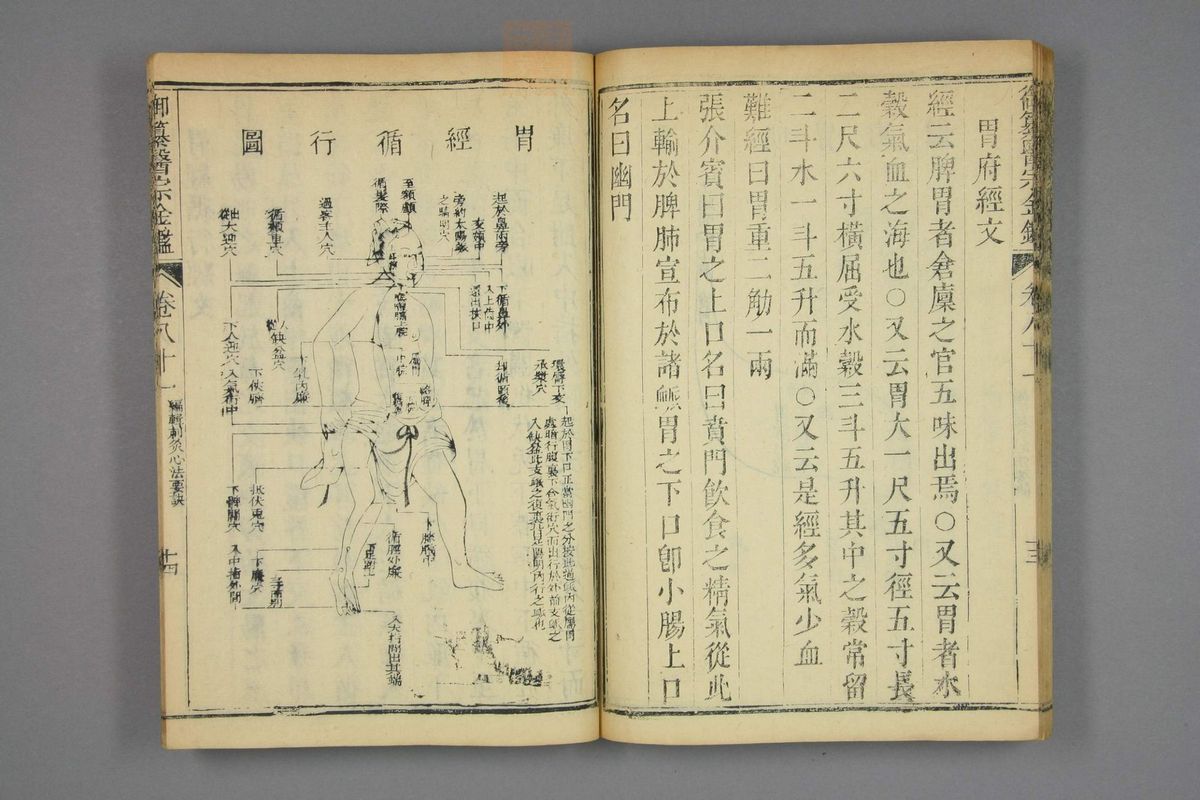 胃府經文
經云脾胃者倉廩之官五味出焉○又云胃者水
穀氣血之海也○又云胃大一尺五寸徑五寸長
二尺六寸橫屈受水穀三斗五升其中之穀常留
二斗水一斗五升而滿○又云是經多氣少血
難經曰胃重二觔一兩
張介賓曰胃之上口名曰賁門飲食之精氣從此
上輸於脾肺宣布於諸脈胃之下口卽小腸上口
名曰幽門
御纂醫宗金鑑
卷八十一
十三
胃經循行圖
起於鼻兩旁
交頞中
旁約太陽脈
之睛明穴
至額顱
循髮際
過客主人穴
循頰車穴
出大迎穴
下循鼻外
入上齒中
還出挾口
環脣下交
承漿穴
却循頤後
下人迎穴
入缺盆穴
下乳內廉
下俠臍
入氣街中
起於胃下口正當幽門之分按此道脈內從屬胃
絡脾行腹裏下合氣街穴而出行於外前支脈之
入缺盆此支脈之復裏皆足陽明內行之脈也
抵伏兔穴
下髀關穴
下膝臏中
循脛外廉
下足跗上
下廉穴
三寸而別
入中指外間
入大指間出其端
御纂醫宗金鑑
卷八十一
編輯刺灸心法要訣
十四